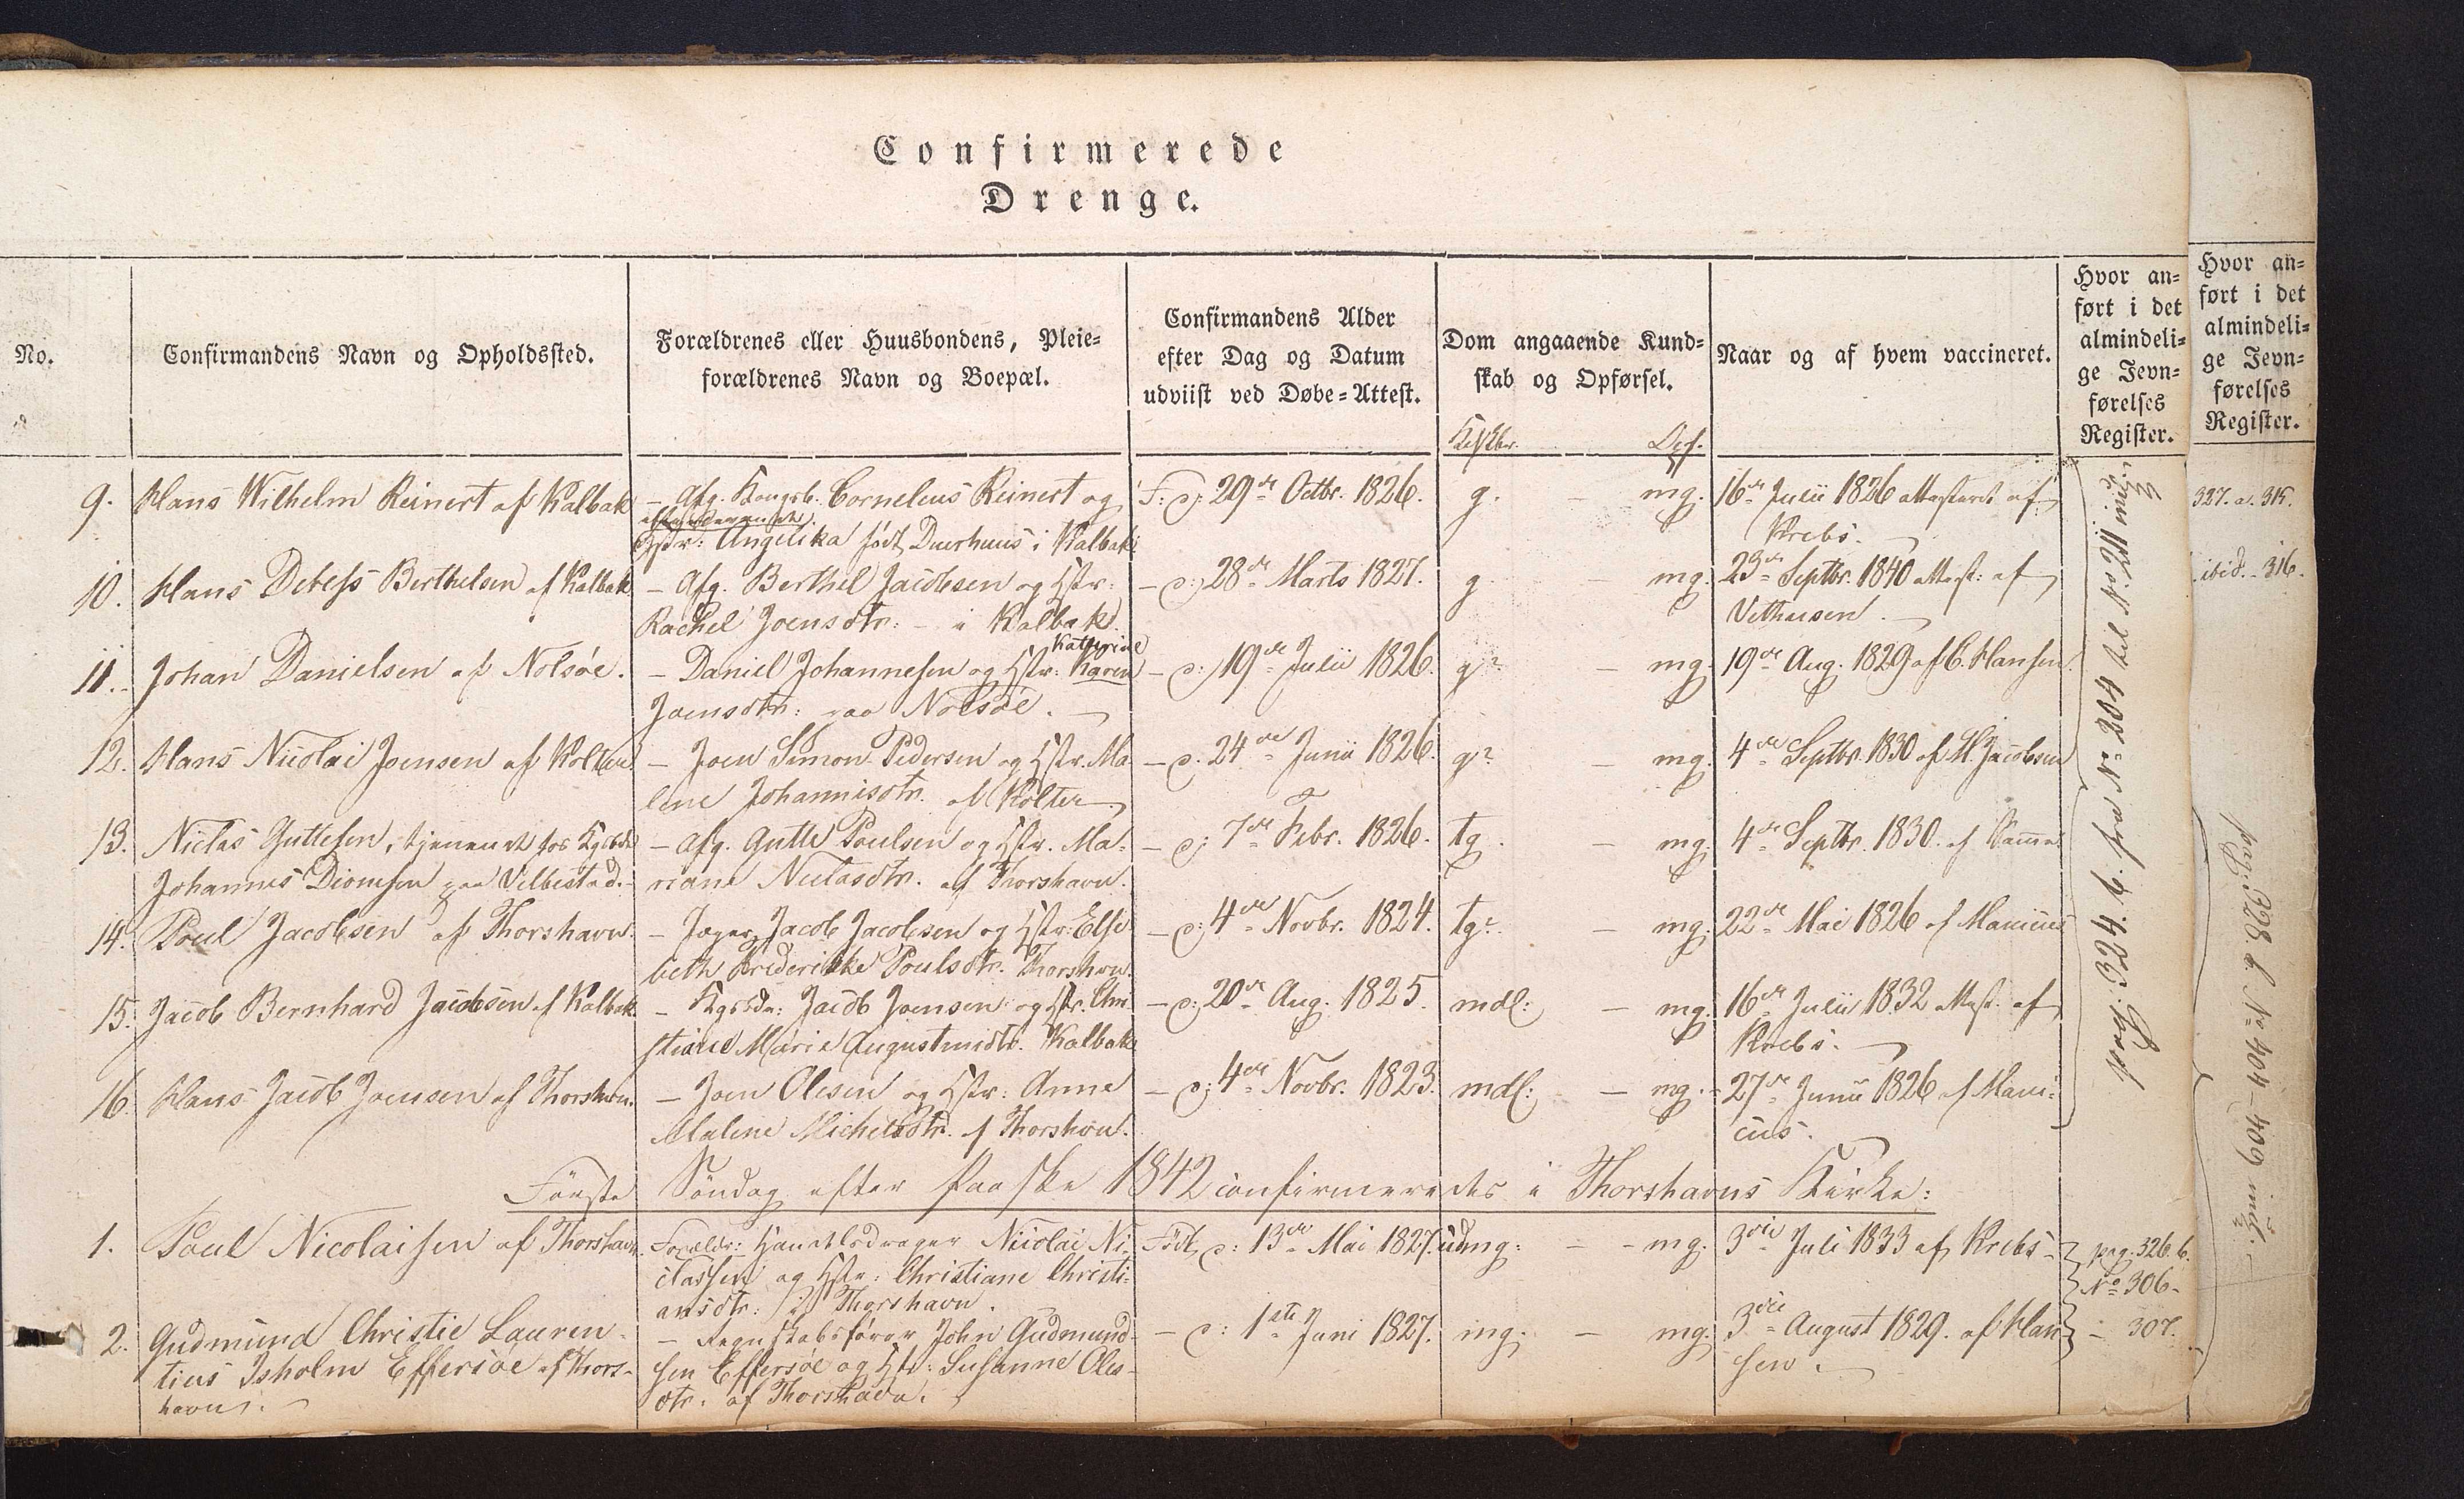 Confirmerede
Drenge.
No.
Confirmandens Navn og Opholdssted.
Forældrenes eller Huusbondens, Pleie=
forældrenes Navn og Boepæl.
Confirmandens Alder
efter Dag og Datum
udviist ved Døbe=Attest.
Dom angaaende Kund=
skab og Opførsel.
Naar og af hvem vaccineret.
Hvor an=
ført i det
almindeli=
ge Jevn=
førelses
Register.
Hvor an=
ført i det
almindeli=
ge Jevn=
førelses
Register.
9. Hans Wilhelm Reinert af Kalbak
– Afg. Kongsb. Cornelius Reinert og
Hstr: Angelika født Duerhuus i Kalbak
F: d: 29de Octbr. 1826.
g. – mg.
16de Julii 1826 attesteret af
Krebs.
327. a. 315.
10. Hans Debess Berthelsen af Kalbak
– Afg. Berthel Jacobsen og Hstr:
Rachel Joensdtr: – i Kalbak
– d: 28de Marts 1827.
g – mg.
23de Septbr. 1840 attest: af
ibid. – 316.
11. Johan Danielsen af Nolsøe.
– Daniel Johannesen og Hstr: Karen
Kathrine
Joensdtr: paa Nolsøe.
– d: 19de Julii 1826.
g? – mg.
19de Aug. 1829 af C. Hansen
12. Hans Nicolai Joensen af Kolter
– Joen Simon Pedersen og Hstr. Ma
lene Johannisdtr. af Kolter
– d. 24de Junii 1826.
g? – mg.
4de Septbr. 1830 af H. Jacobsen
13. Niclas Guttesen, tjenende hos Kgsbd.
Johannes Dionesen paa Velbestad.
– afg. Gutte Poulsen og Hstr. Ma=
riane Niclasdtr. af Thorshavn.
– d: 7de Febr. 1826.
tg. – mg.
4de Septbr. 1830. af
14. Poul Jacobsen af Thorshavn.
– Jæger Jacob Jacobsen og Hstr: Else
beth Frederikke Poulsdtr. Thorshvn.
– d: 4de Novbr. 1824.
tg? – mg.
22de Mai 1826 af Manicus
15. Jacob Bernhard Jacobsen af Kalbak
– Kgsbd: Jacob Joensen og Hstr. Chri
stiane Marie Augustinidtr. Kalbak
– d: 20de Aug. 1825.
mdl: – mg.
16de Julii 1832 attest. af
Krebs.
16. Hans Jacob Joensen af Thorshvn.
– Joen Olesen og Hstr: Anne
Malene Michelsdtr. af Thorshvn.
– d: 4de Novbr. 1823.
mdl: – mg.
27de Junii 1826 af Mani=
cus.
pag: 324. b. fra No 204 til No 211 incl.
pag. 328. b. No 404–409 incl.
Første Søndag efter Paaske 1842 confirmeredes i Thorshavns Kirke:
1. Poul Nicolaisen af Thorshavn.
Forældr: Handelsdrager Nicolai Ni=
classen og Hstr: Christiane Christi=
ansdtr: i Thorshavn.
Født d: 13de Mai 1827.
udmg: – mg.
3die Juli 1833 af Krebs
pag. 326. b.
No 306.
2. Gudmund Christie Lauren=
tius Isholm Effersöe af Thors=
havn.
– Regnskabsfører John Gudmund=
sen Effersöe og Hstr: Susanne Oles=
dtr. af Thorshavn.
– d: 1ste Juni 1827.
mg. – mg.
3die August 1829. af Han
sen.
– 307.